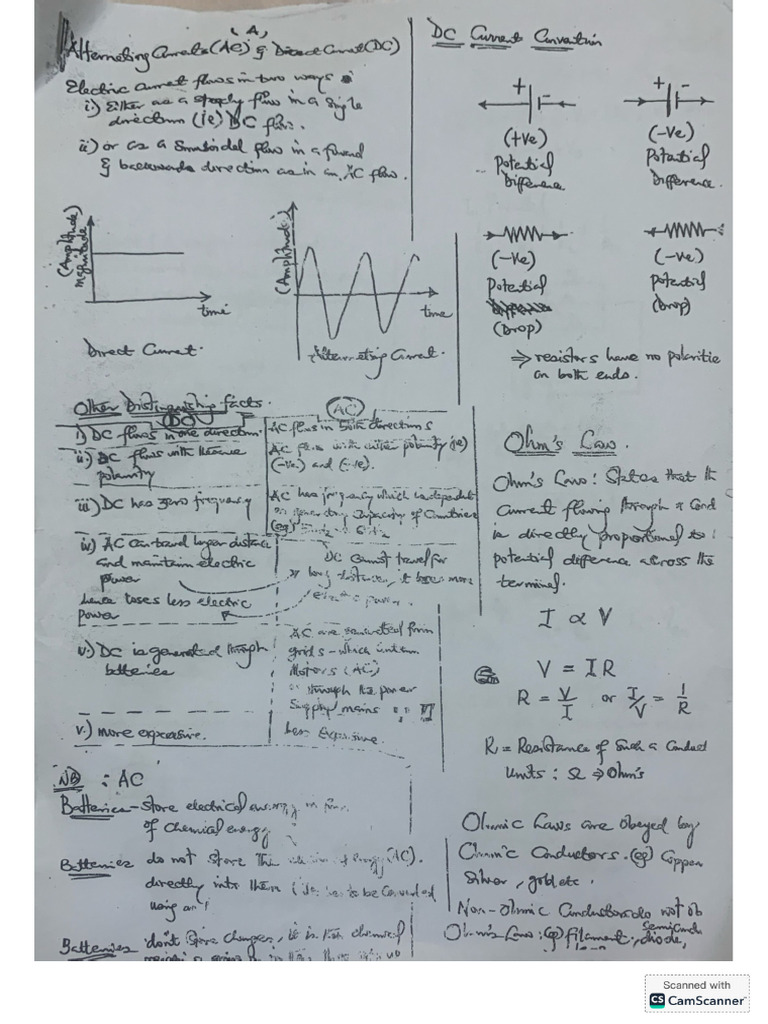 (A)
Alternating Currents (AC) & Direct Current (DC)
Electric Current flows in two ways
i) Either as a steady flow in a single
direction (ie) DC flow.
ii) or as a Sinusoidal flow in a forward
& backwards direction as in an AC flow.
(Amplitude)
magnitude
time
Direct Current.
(Amplitude)
time
Alternating Current.
Other Distinguishing facts.
(DC)
(AC)
i) DC flows in one direction.
AC flows in both directions
ii) DC flows with the same
polarity
AC flows with either polarity (ie)
(-ve) and (+ve).
iii) DC has zero frequency
AC has frequency which is dependent
Capacity of Countries
(eg)
iv) AC can travel longer distance
and maintain electric
power
hence loses less electric
power
DC Cannot travel for
long distance, it loses more
electric power.
v.) DC is generated through
batteries
AC are generated from
grids - which
Motors (AC)
or through the power
Supply mains
v.) more expensive.
Less Expensive
NB : AC
Batteries - store electrical energy in form
of Chemical energy
Batteries do not store this energy (AC).
directly into them to be Converted
using an
Batteries don't store charges, it is the chemical
DC Current Convention
+ -
(+ve)
Potential
Difference
+ -
(-ve)
Potential
Difference.
(-ve)
Potential
(Drop)
(-ve)
Potential
(Drop)
⇒ resistors have no polaritie
on both ends.
Ohm's Law.
Ohm's Law: States that th
Current flowing through a Cond
is directly proportional to
potential difference across the
terminal.
I ∝ V
V = IR
R = V/I or I/V = 1/R
R = Resistance of Such a Conduct
Units: Ω ⇒ Ohm's
Ohmic Laws are obeyed by
Ohmic Conductors. (eg) Copper
Silver, gold etc.
Non-ohmic Conductors do not ob
Ohm's Law: (eg) filament, diode,
Scanned with
CS CamScanner